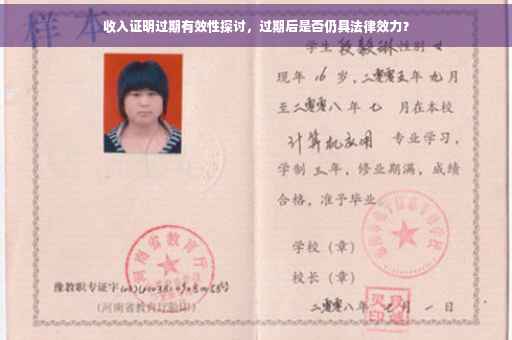 收入证明过期有效性探讨，过期后是否仍具法律效力？
样本
学生段毅琳性别女
现年16岁，二零零五年九月
至二零零八年七月在本校
计算机应用专业学习，
学制三年，修业期满，成绩
合格，准予毕业。
学校（章）
校长（章）
二零零八年 月一日
河南省教育厅
豫教职专证字
（河南省教育厅验印）